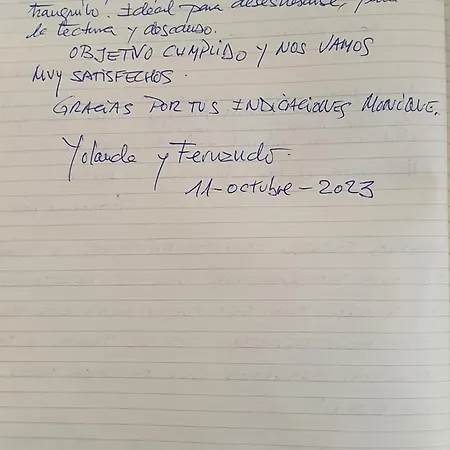 tranquilo! Ideal para desestresarse, para
la lectura y descanso.
OBJETIVO CUMPLIDO Y NOS VAMOS
MUY SATISFECHOS.
GRACIAS POR TUS INDICACIONES MONIQUE.
Yolanda y Fernando.
11-octubre-2023